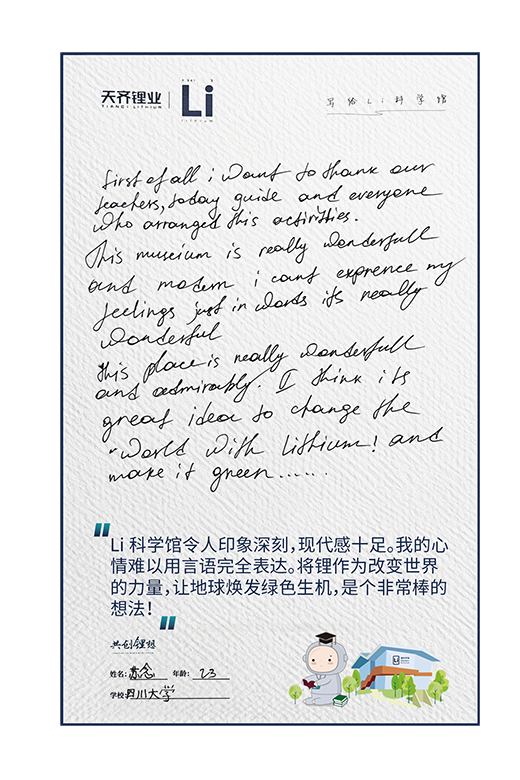 天齐锂业
TIANQI LITHIUM
Li
LITHIUM
写给Li科学馆
first of all i want to thank our
teachers, today guide and everyone
who arranged this activities.
This museium is really wonderfull
and modern i cant exprence my
feelings just in words it's really
wonderful
this place is really wonderfull
and admirably. I think its
great idea to change the
"world with lithium! and
make it green......
"Li 科学馆令人印象深刻，现代感十足。我的心
情难以用言语完全表达。将锂作为改变世界
的力量，让地球焕发绿色生机，是个非常棒的
想法！"
共创锂想
姓名: 苏念 年龄: 23
学校: 四川大学
Li